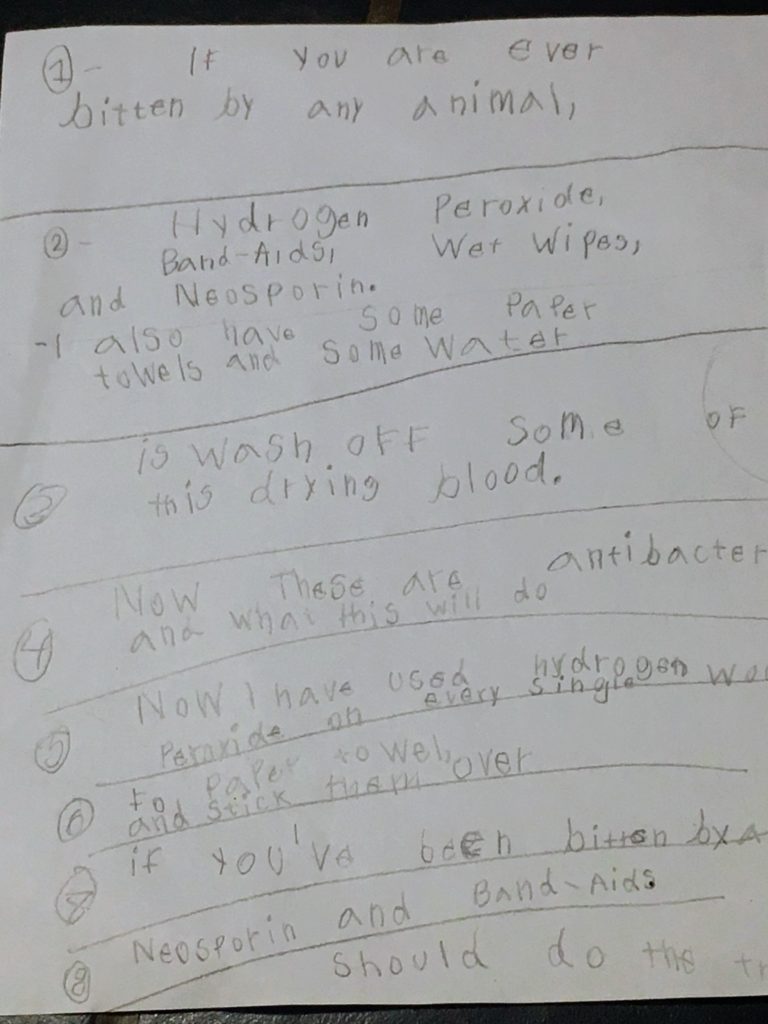 1- If you are ever
bitten by any animal,
2- Hydrogen Peroxide,
Band-Aids, Wet Wipes,
and Neosporin.
-I also have some Paper
towels and some water
is wash off some of
3 this drying blood.
Now These are antibacter
4 and what this will do
Now I have used hydrogen
5 Peroxide on every single wo
to paper towel,
6 and stick them over
7 if you've been bitten by a
Neosporin and Band-Aids
8 should do the tr